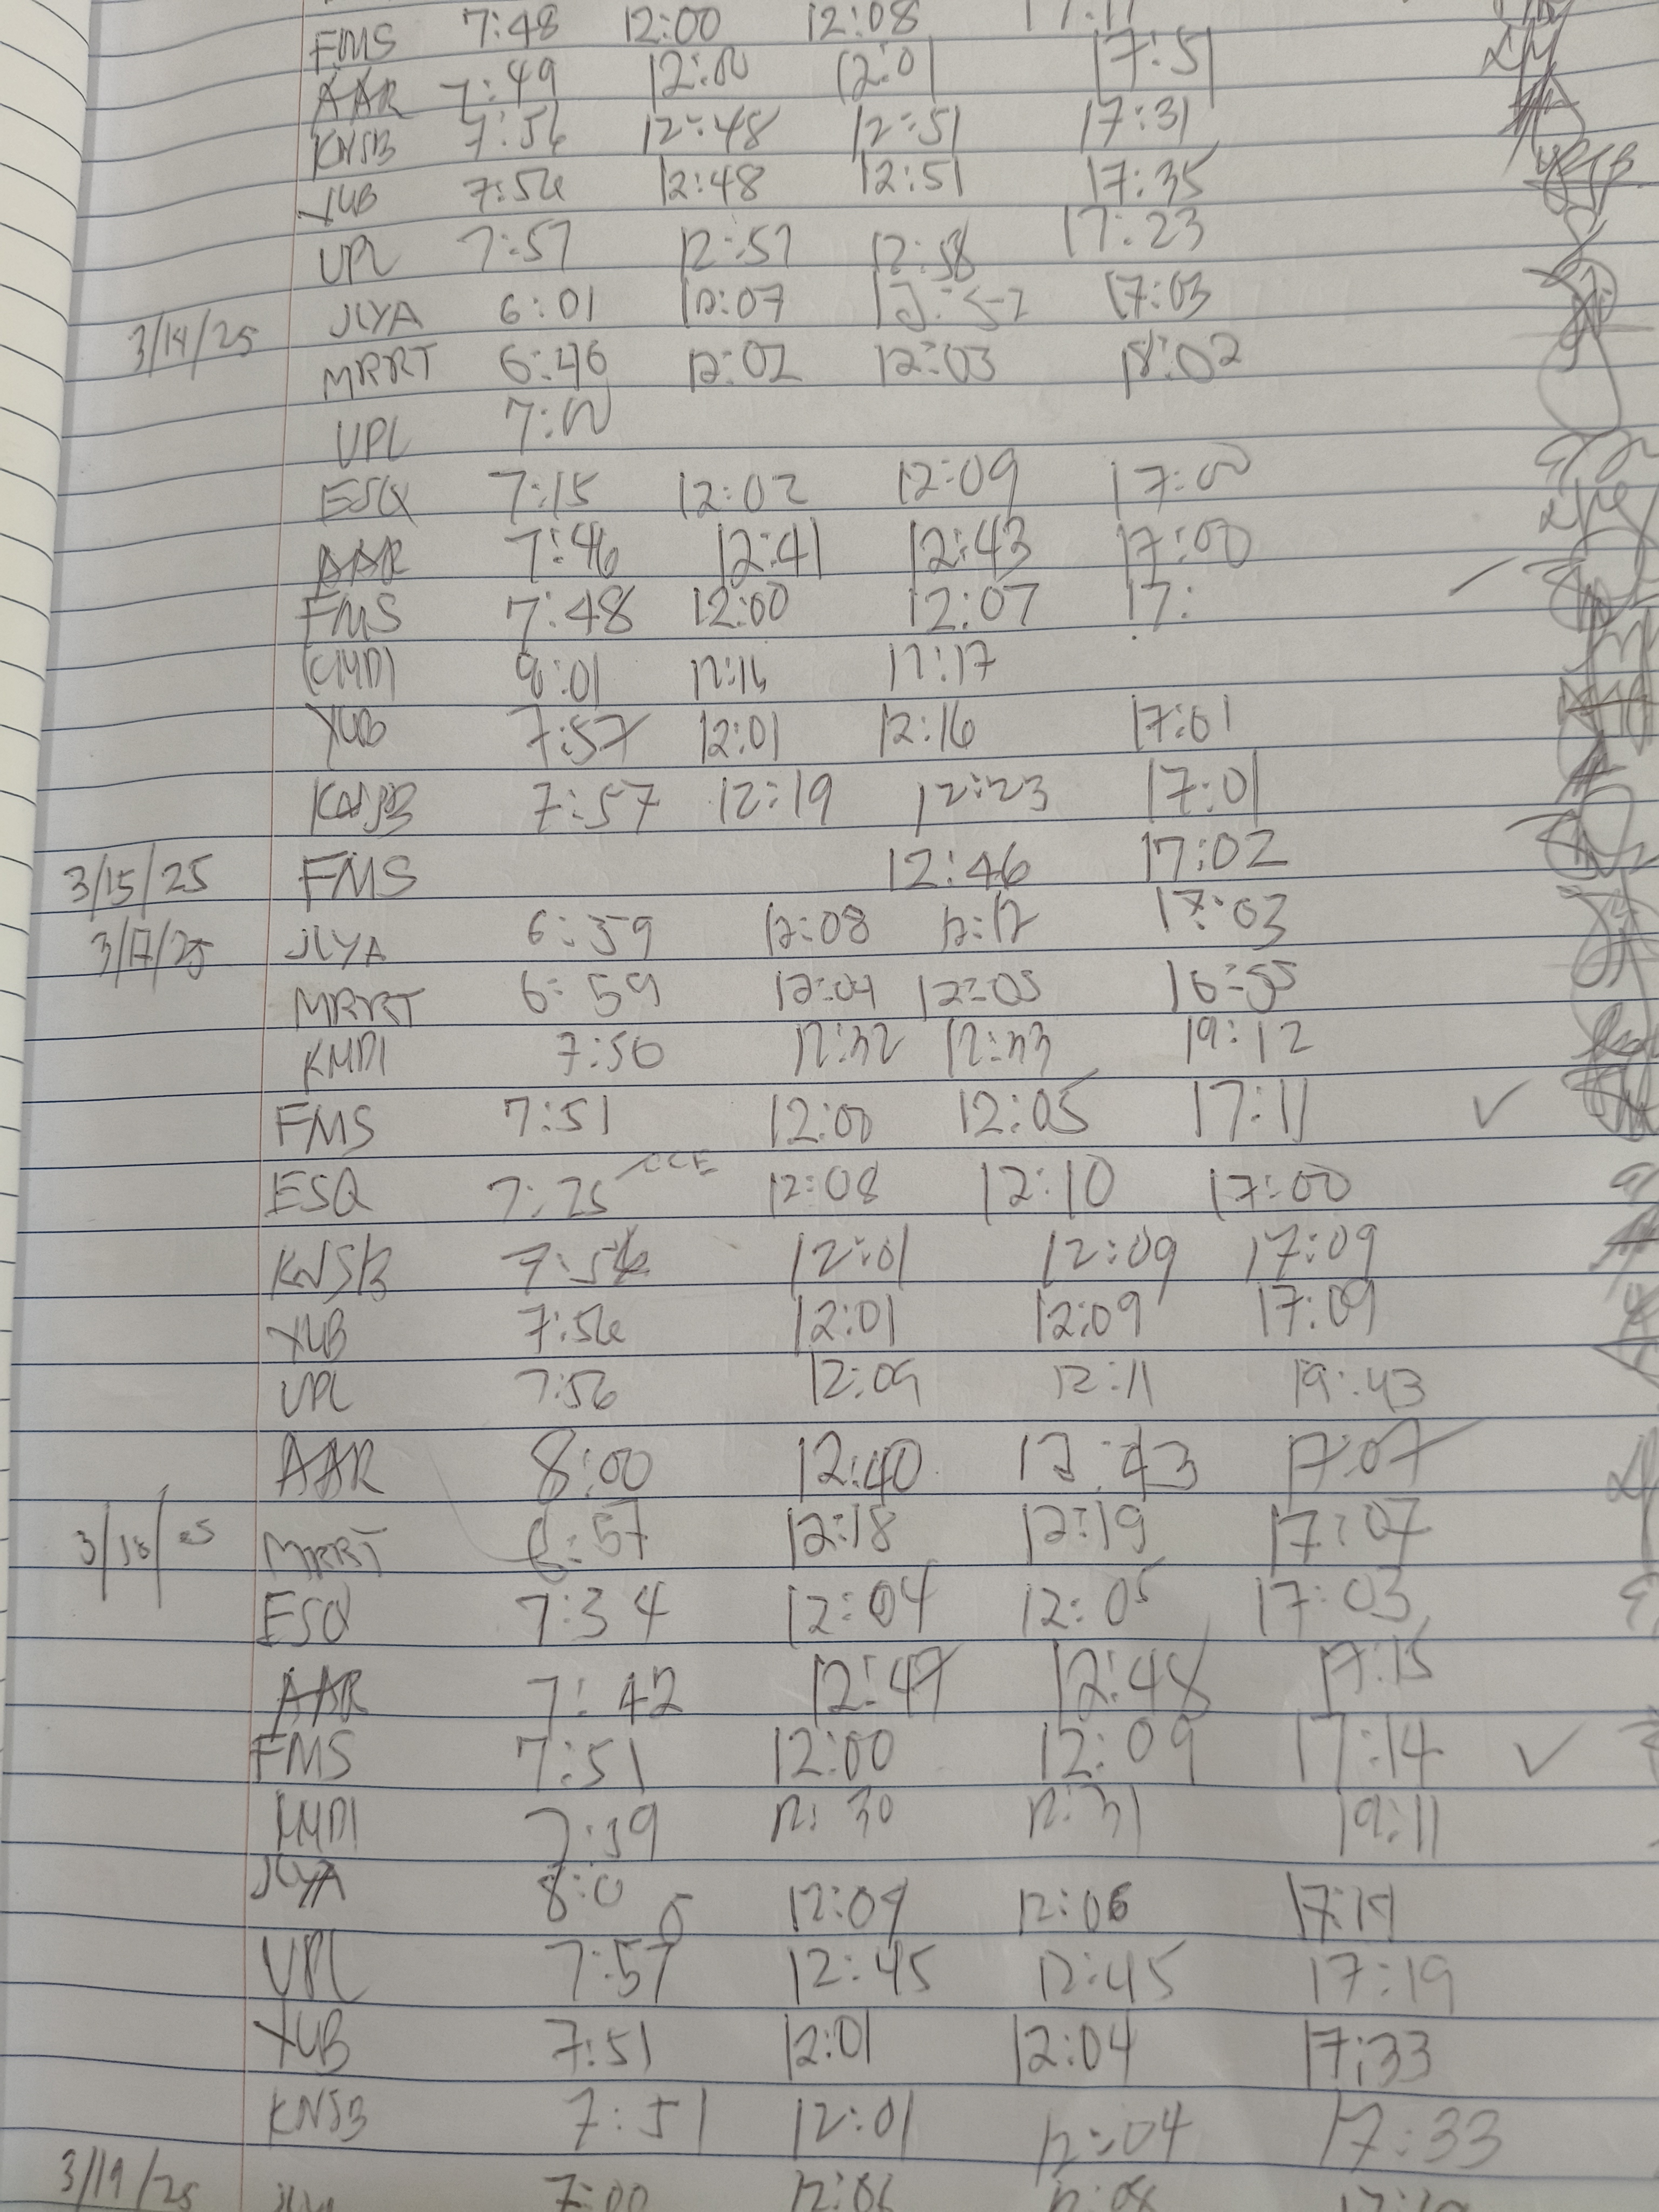 FMS 7:48 12:00 12:08 17:11
AAR 7:49 12:00 12:01 17:51
KNSB 7:56 12:48 12:51 17:31
YUB 7:56 12:48 12:51 17:35
UPL 7:57 12:57 12:58 17:23
3/14/25 JLYA 6:01 12:07 17:03
MRRT 6:46 12:02 12:03 18:02
UPL 7:00
ESQ 7:15 12:02 12:09 17:00
AAR 7:46 12:41 12:43 17:00
FMS 7:48 12:00 12:07 17:
KMDI 8:01 12:16 12:17
YUB 7:57 12:01 12:16 17:01
KNSB 7:57 12:19 12:23 17:01
3/15/25 FMS 12:46 17:02
3/17/25 JLYA 6:59 12:08 12:12 17:03
MRRT 6:59 12:04 12:05 16:55
KMDI 7:50 12:32 12:33 19:12
FMS 7:51 12:00 12:05 17:11 ✓
ESQ 7:25 12:08 12:10 17:00
KNSB 7:56 12:01 12:09 17:09
YUB 7:56 12:01 12:09 17:09
UPL 7:56 12:09 12:11 19:43
AAR 8:00 12:40 12:43 17:07
3/18/25 MRRT 6:57 12:18 12:19 17:07
ESQ 7:34 12:04 12:05 17:03
AAR 7:42 12:47 12:48 17:15
FMS 7:51 12:00 12:09 17:14 ✓
KMDI 7:39 12:30 12:31 19:11
JLYA 8:00 12:04 12:06 17:14
UPL 7:57 12:45 12:45 17:19
YUB 7:51 12:01 12:04 17:33
KNSB 7:51 12:01 12:04 17:33
3/19/25 JLYA 7:00 12:06 12:08